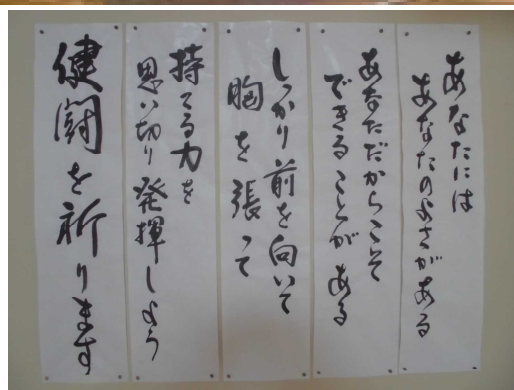 あなたには
あなたのよさがある
あなただからこそ
できることがある
しっかり前を向いて
胸を張って
持てる力を
思い切り発揮しよう
健闘を祈ります